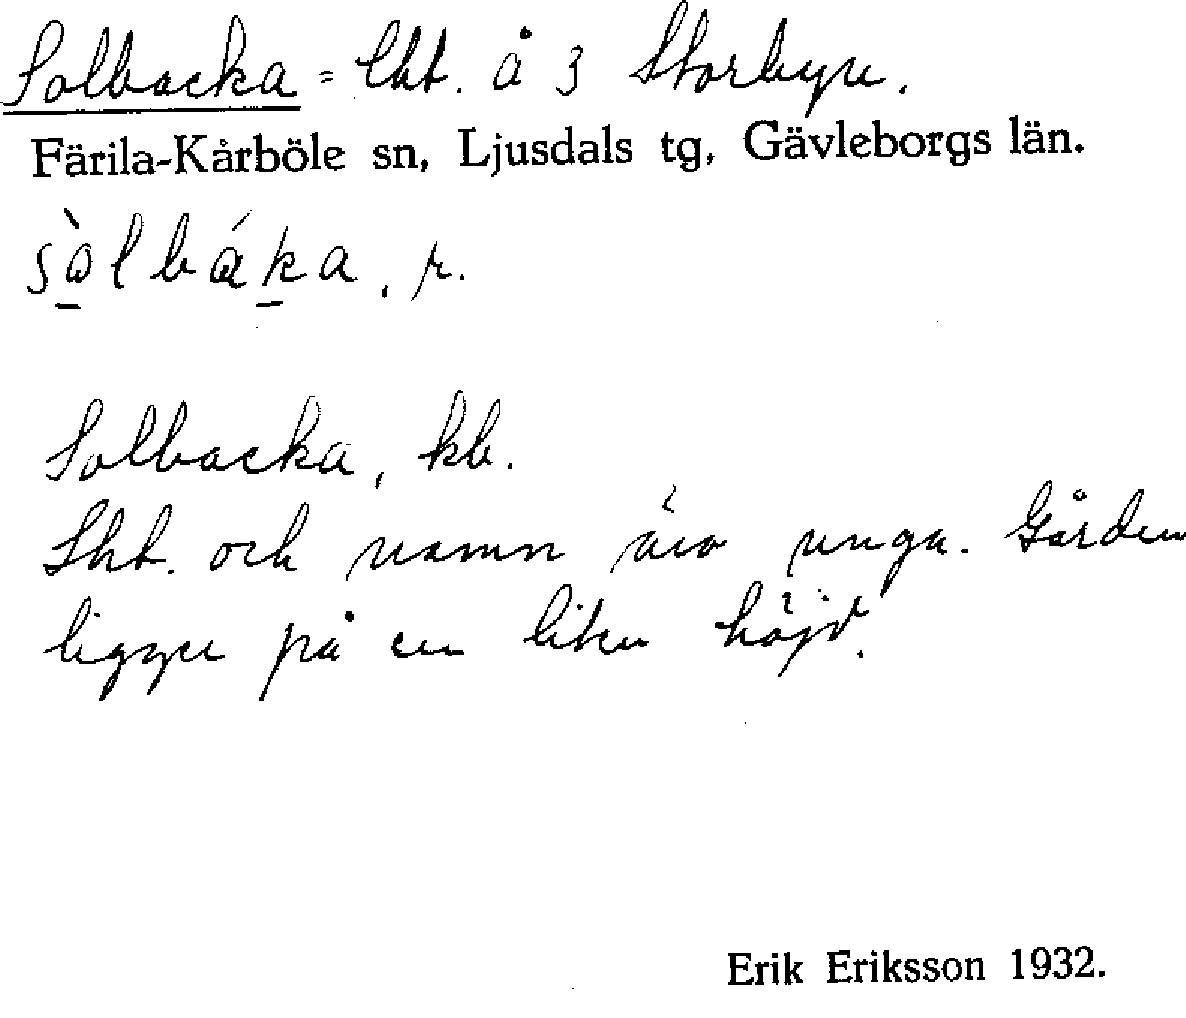 Solbacka = lht. å 3 Storbyn.
Färila-Kårböle sn, Ljusdals tg, Gävleborgs län.
sòlbáka, r.
Solbacka, kb.
Lht. och namn äro unga. Gården
ligger på en liten höjd.
Erik Eriksson 1932.